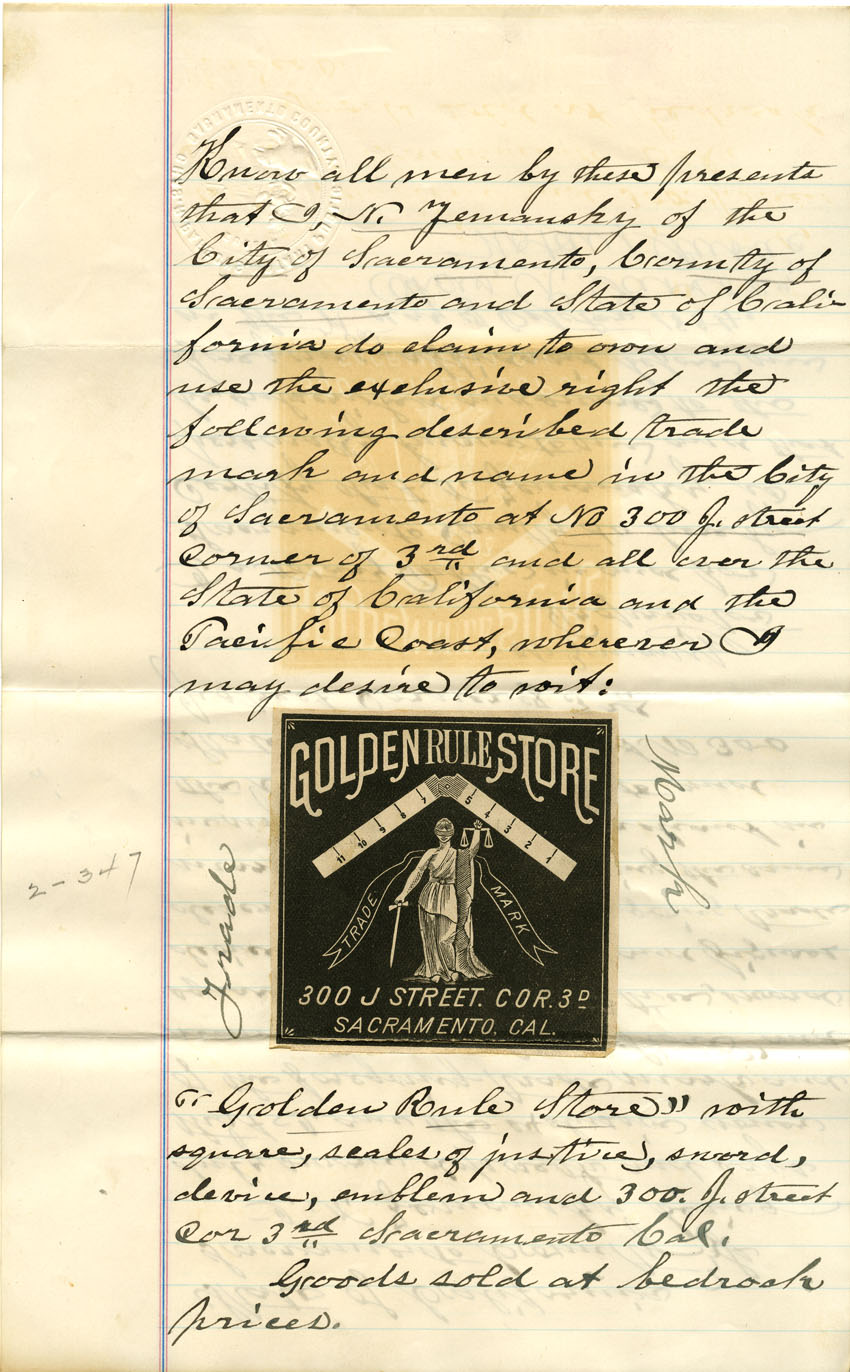 Know all men by these presents
that I, N. Zemansky of the
City of Sacramento, County of
Sacramento and State of Cali-
fornia do claim to own and
use the exclusive right the
following described trade
mark and name in the City
of Sacramento at No 300 J. street
Corner of 3rd and all over the
State of California and the
Pacific Coast, wherever I
may desire to wit:
GOLDEN RULE STORE
11 10 9 8 7 5 4 3 2 1
TRADE MARK
300 J STREET. COR. 3D
SACRAMENTO, CAL.
Trade
Mark
2-347
"Golden Rule Store" with
square, scales of justice, sword,
device, emblem and 300. J. street
Cor 3rd Sacramento Cal.
Goods sold at bedrock
prices.